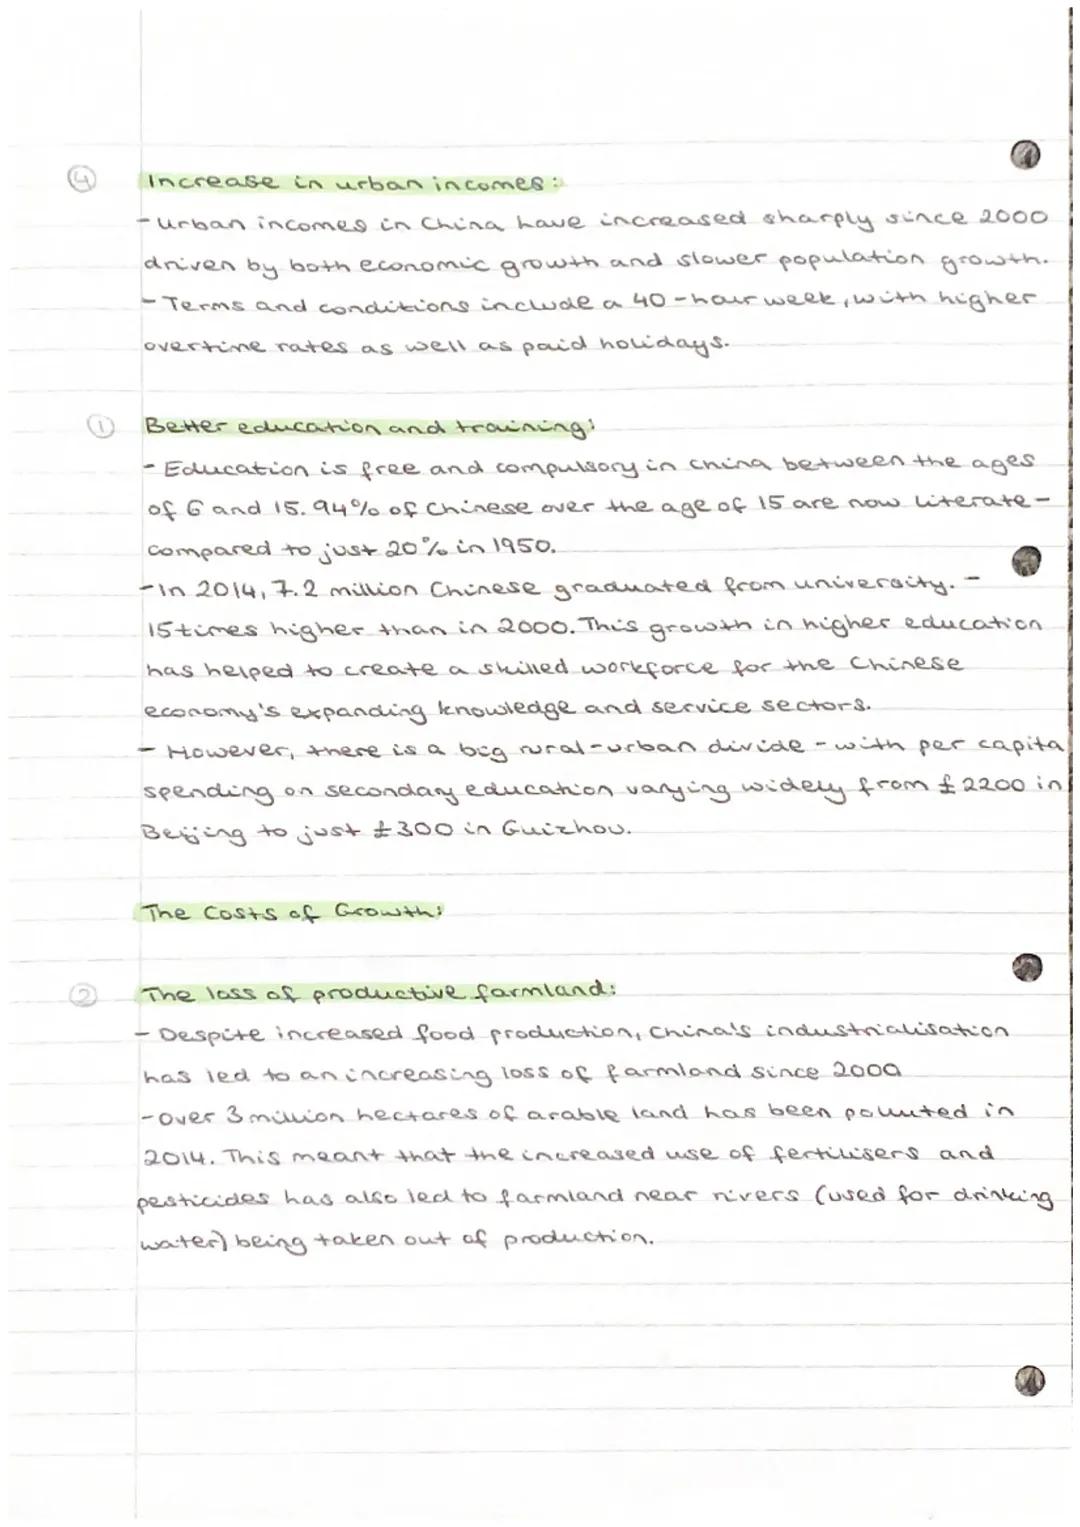 ④ Increase in urban incomes:
- Urban incomes in China have increased sharply since 2000
driven by both economic growth and slower population growth.
- Terms and conditions include a 40-hour week, with higher
overtime rates as well as paid holidays.
① Better education and training:
- Education is free and compulsory in China between the ages
of 6 and 15. 94% of Chinese over the age of 15 are now literate -
compared to just 20% in 1950.
- In 2014, 7.2 million Chinese graduated from university. -
15 times higher than in 2000. This growth in higher education
has helped to create a skilled workforce for the Chinese
economy's expanding knowledge and service sectors.
- However, there is a big rural-urban divide - with per capita
spending on secondary education varying widely from £2200 in
Beijing to just £300 in Guizhou.
The Costs of Growth:
② The loss of productive farmland:
- Despite increased food production, China's industrialisation
has led to an increasing loss of farmland since 2000
- Over 3 million hectares of arable land has been polluted in
2014. This meant that the increased use of fertilisers and
pesticides has also led to farmland near rivers (used for drinking
water) being taken out of production.